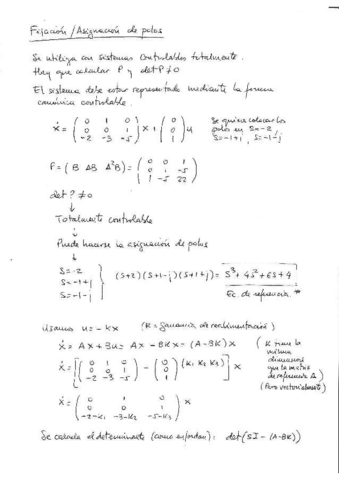 Fijación / Asignación de polos
Se utiliza con sistemas controlables totalmente.
Hay que calcular P y det P ≠ 0
El sistema debe estar representado mediante la forma
canónica controlable.
ẋ = ( 0 1 0 ; 0 0 1 ; -2 -3 -5 ) x + ( 0 ; 0 ; 1 ) u
Se quiere colocar los
polos en s = -2,
s = -1+j, s = -1-j
P = ( B AB A²B ) = ( 0 0 1 ; 0 1 -5 ; 1 -5 22 )
det P ≠ 0
↓
Totalmente controlable
↓
Puede hacerse la asignación de polos
s = -2
s = -1+j
s = -1-j
(s+2)(s+1-j)(s+1+j) = s³ + 4s² + 6s + 4
Ec. de referencia *
Usamos u = -Kx (K = ganancia de realimentación)
ẋ = Ax + Bu = Ax - BKx = (A-BK)x
(K tiene la
misma
dimensión
que la matriz
de referencia A)
(Pero vectorialmente)
ẋ = [ ( 0 1 0 ; 0 0 1 ; -2 -3 -5 ) - ( 0 ; 0 ; 1 ) (K₁ K₂ K₃) ] x
ẋ = ( 0 1 0 ; 0 0 1 ; -2-K₁ -3-K₂ -5-K₃ ) x
Se calcula el determinante (como en Jordan): det(SI - (A-BK))